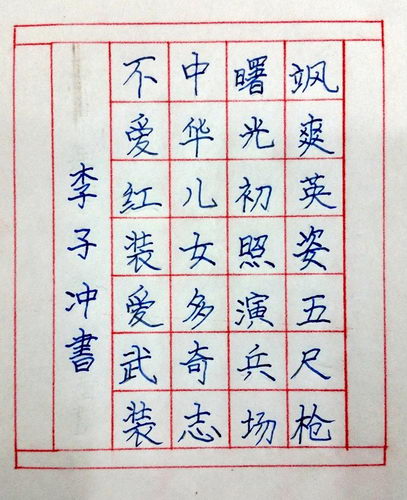 飒爽英姿五尺枪
曙光初照演兵场
中华儿女多奇志
不爱红装爱武装
李子冲書